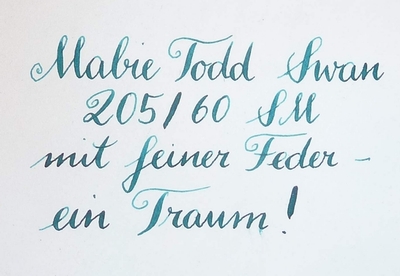 Mabie Todd Swan
205/60 SM
mit feiner Feder –
ein Traum!